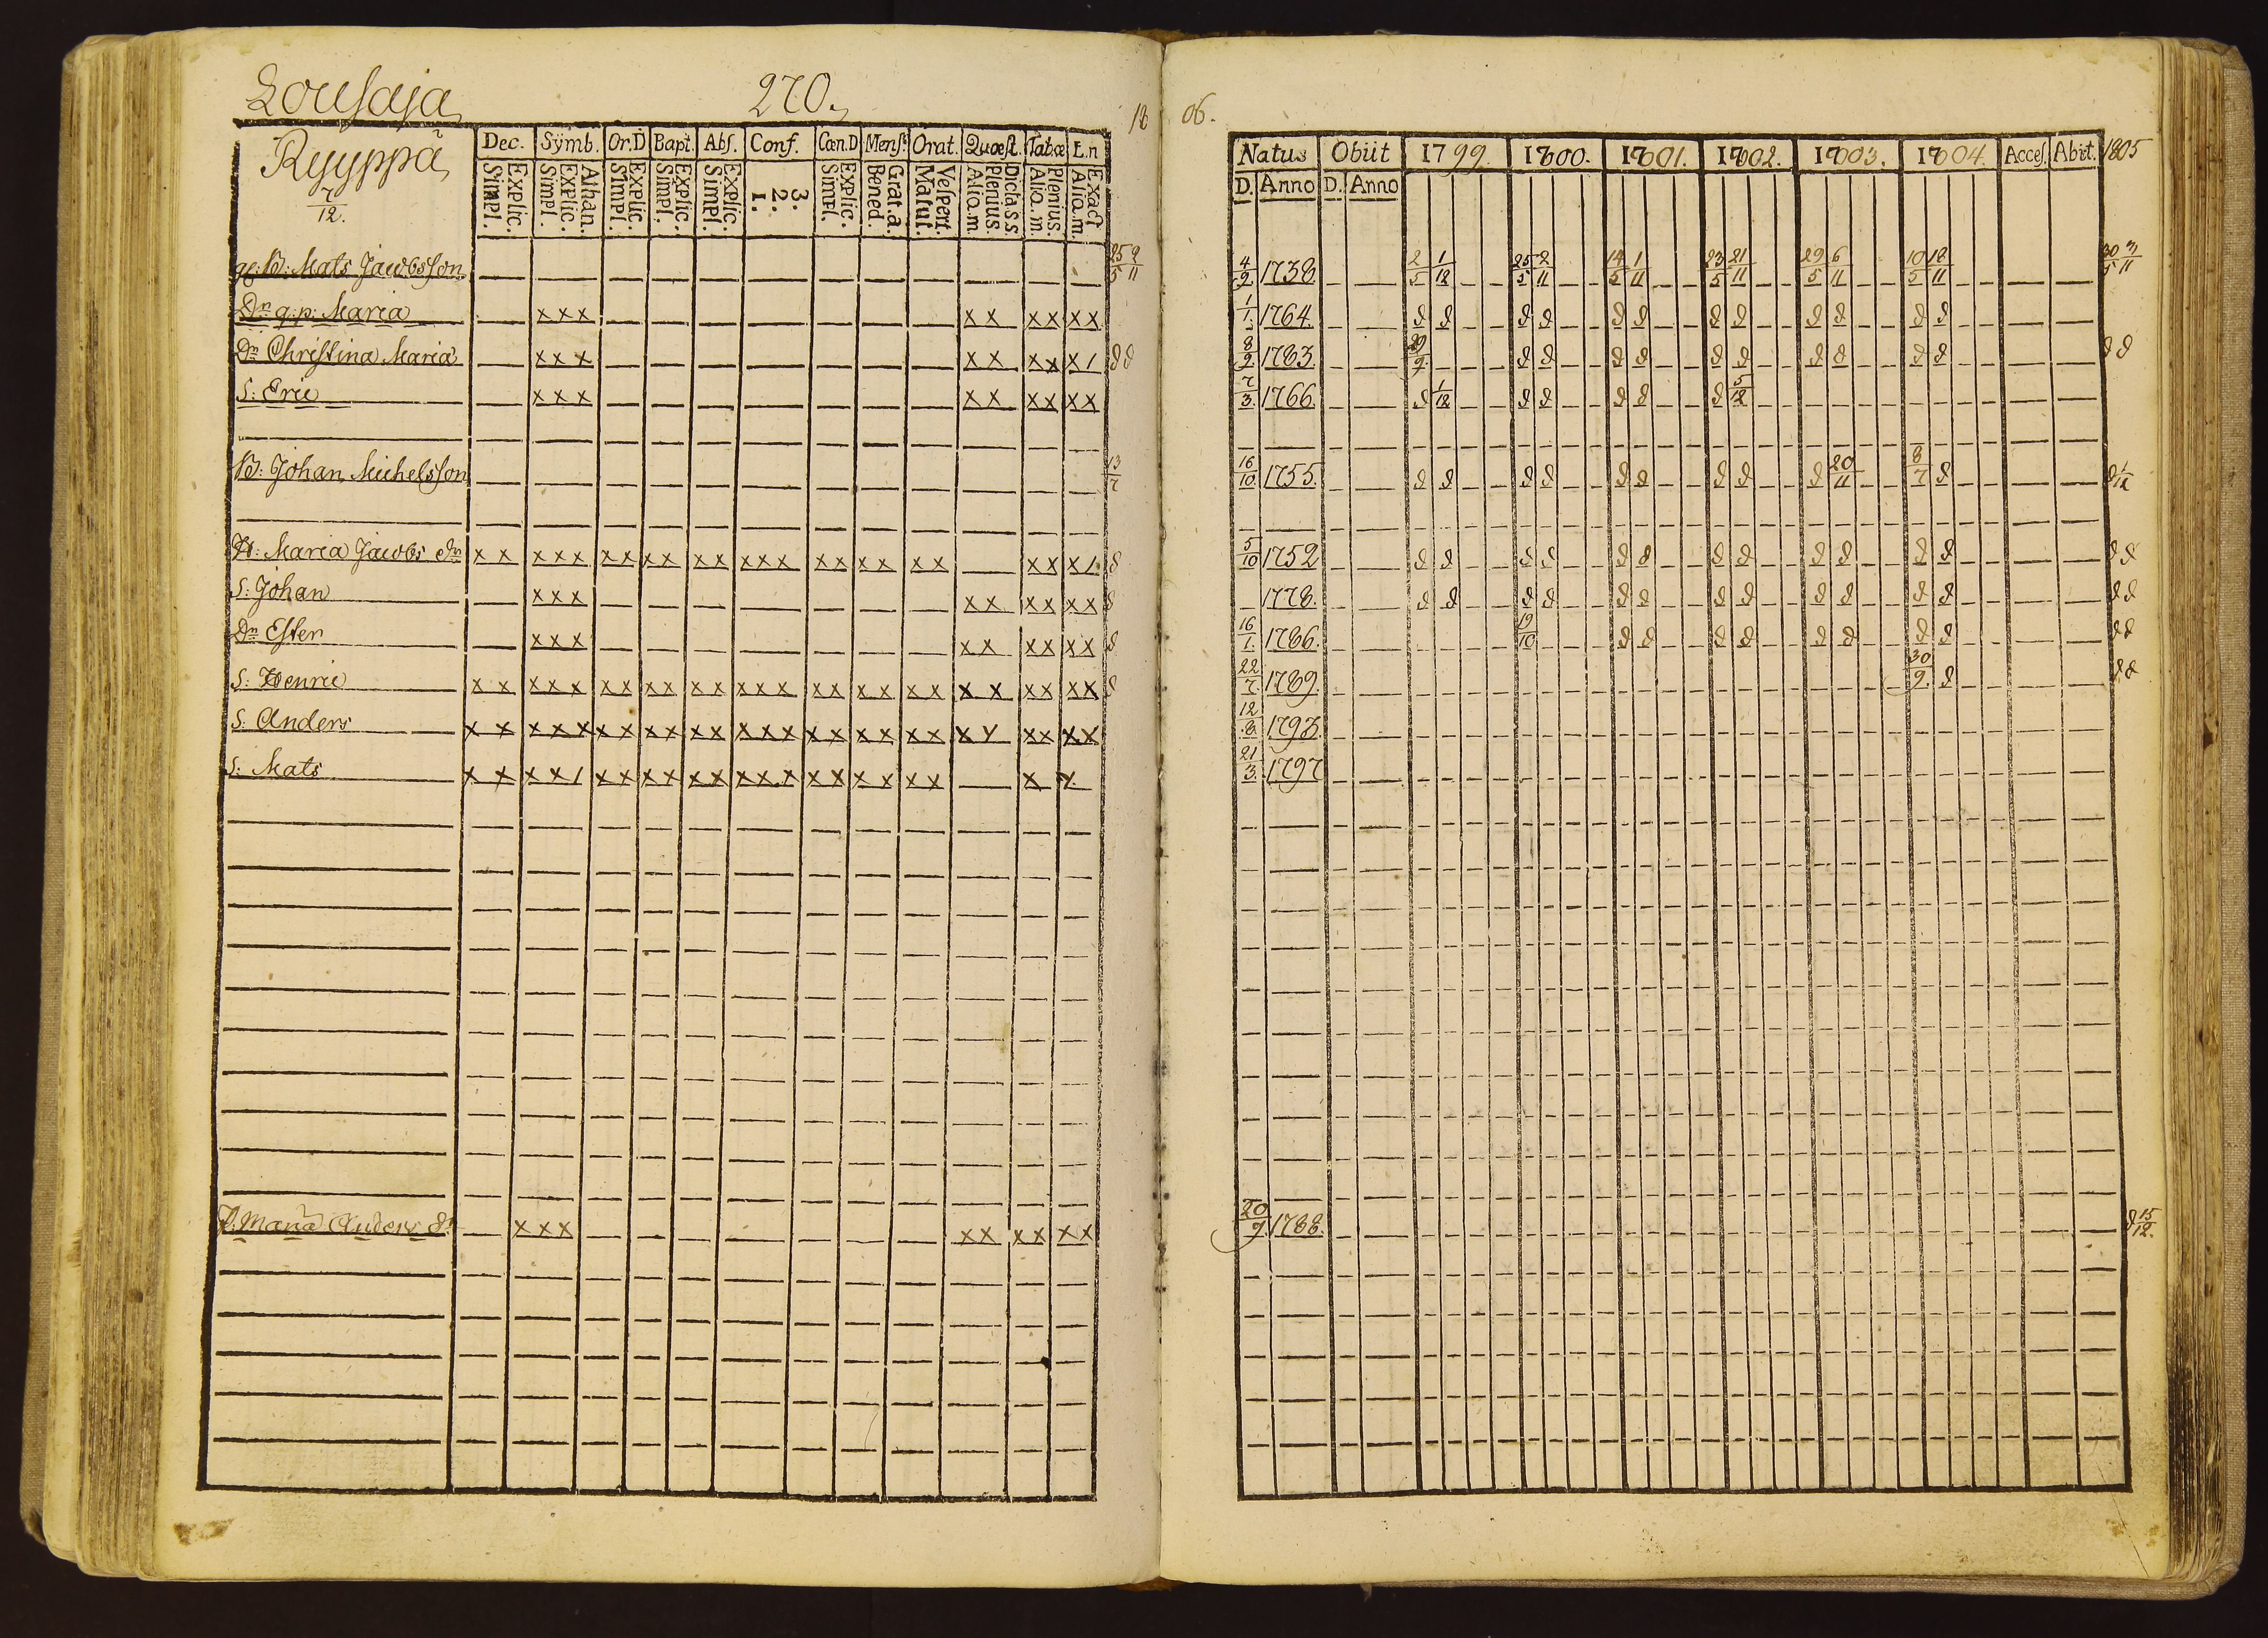 Lousaja 270.
Ryyppä
7/12.
Dec. Sÿmb. Or.D Bapt. Abs. Conf. Cœn.D Mensæ Orat. Quæst. Tabæ L.n
Explic. Simpl. Athan. Explic. Simpl. Explic. Simpl. Explic. Simpl. Explic. Simpl. 3. 2. 1. Explic. Simpl. Grat.a. Bened. Vespert. Matut. Dicta s.s. Plenius. Aliq.m Plenius. Aliq.m Exact Aliq.m.
B: Mats Jacobsson — — — — — — — — — — — — 25/5 2/11
Dr. q:p: Maria — xxx — — — — — — — xx xx xx
Dr. Christina Maria — xxx — — — — — — — xx xx x1 d d
S: Eric — xxx — — — — — — — xx xx xx
B: Johan Michelsson — — — — — — — — — — — — 13/7
H: Maria Jacobs dr xx xxx xx xx xx xxx xx xx xx — xx x1 d
S: Johan — xxx — — — — — — — xx xx xx d
Dr. Ester — xxx — — — — — — — xx xx xx d
S: Henric xx xxx xx xx xx xxx xx xx xx xx xx xx d
S: Anders xx xxx xx xx xx xxx xx xx xx xx xx xx
S: Mats xx xx1 xx xx xx xxx xx xx xx — x x
P: Maria Anders dr — xxx — — — — — — — xx xx xx
18 06.
Natus Obiit 1799. 1800. 1801. 1802. 1803. 1804. Acces. Abiit. 1805
D. Anno D. Anno
4/2 1738 2/5 1/12 25/5 2/11 14/5 1/11 23/5 21/11 29/5 6/11 10/5 18/11 30/5 3/11
1/1 1764. d d d d d d d d d d d d
8/2 1783. 29/9 d d d d d d d d d d d d
7/3 1766. d 1/12 d d d d d 5/12
16/10 1755. d d d d d d d d d 20/11 8/7 d d 1/12
5/10 1752 d d d d d d d d d d d d d d
1778. d d d d d d d d d d d d d d
16/1. 1786. 19/10 d d d d d d d d d d
22/7 1789. 30/9. d d d
12/8 1793.
21/3 1797
20/9 1788. d 15/12.